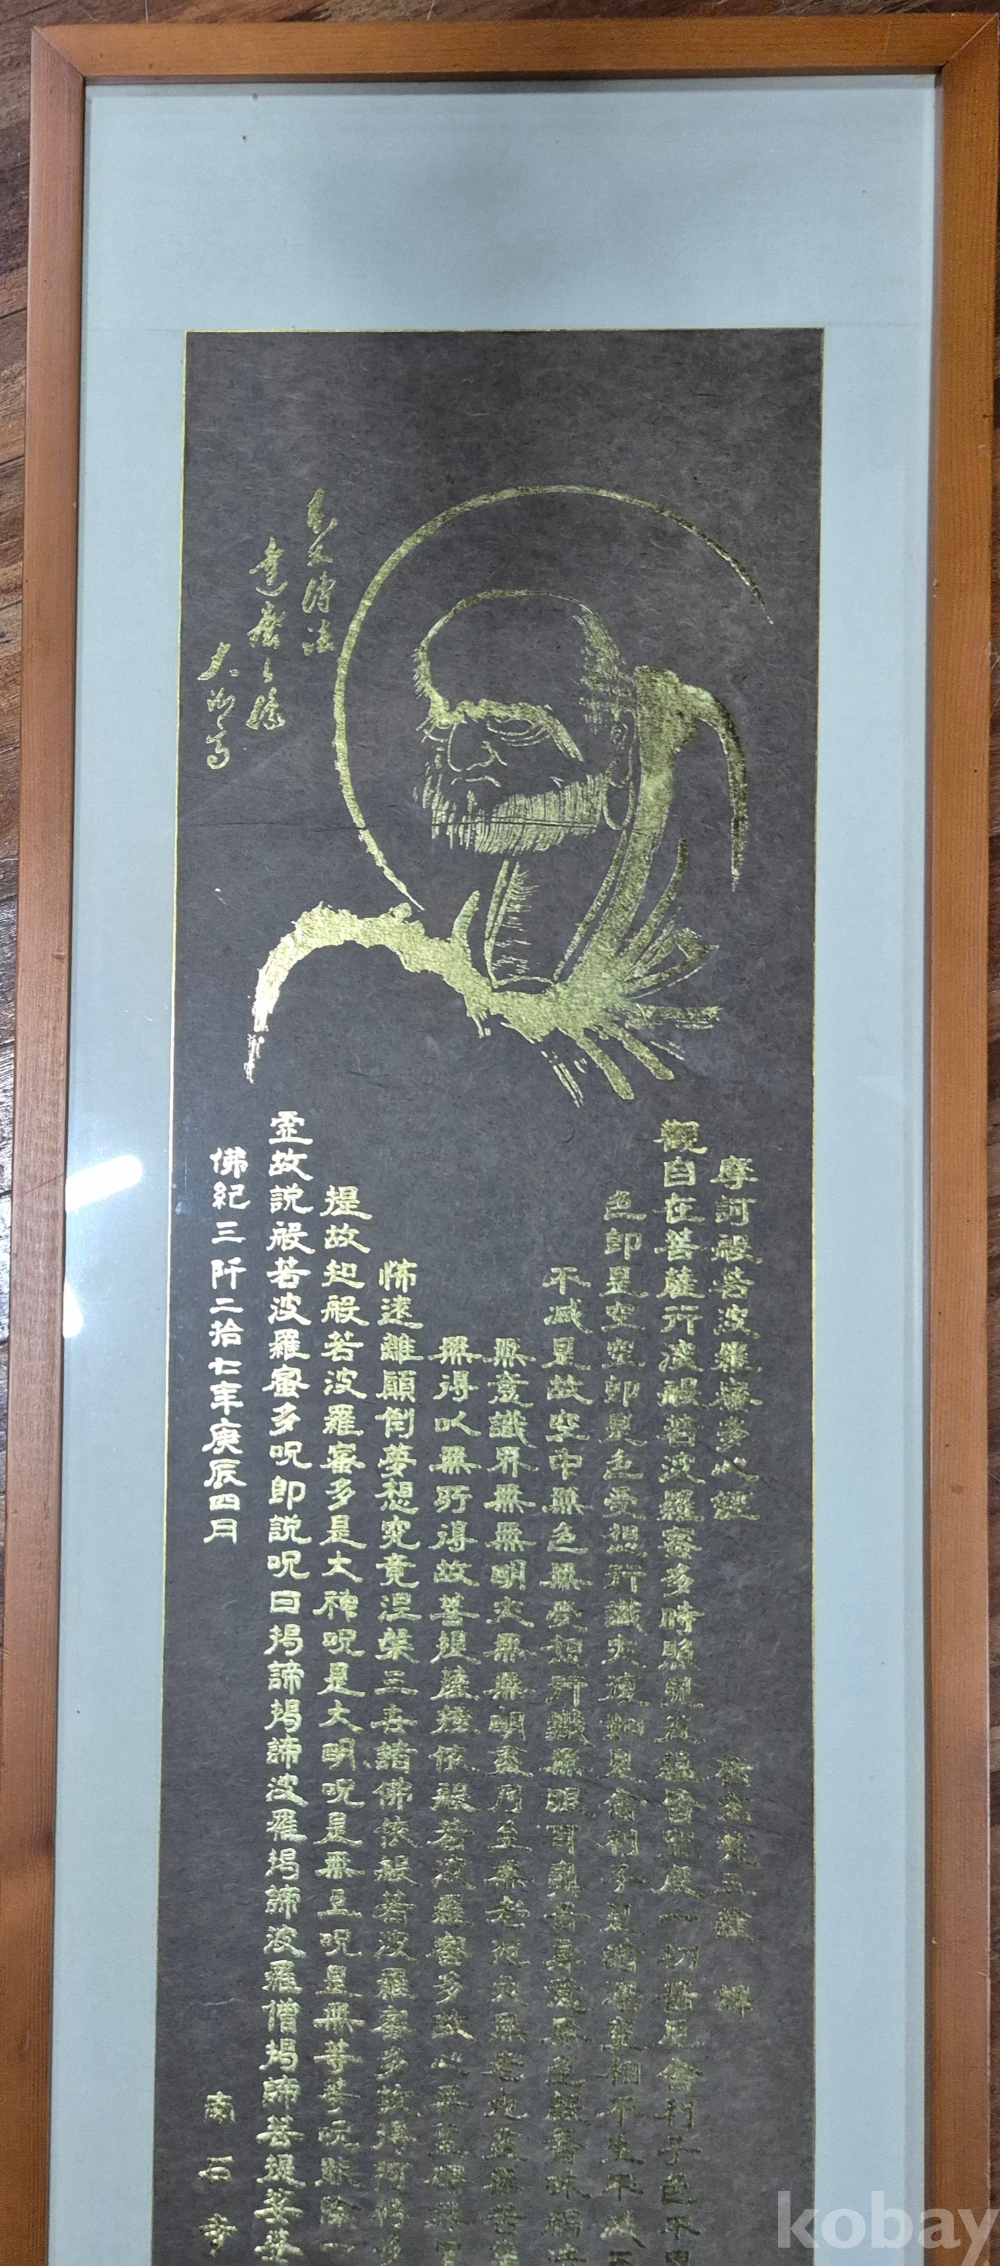 摩訶般若波羅蜜多心經
觀自在菩薩行深般若波羅蜜多時照見五蘊皆空度一切苦厄舍利子色不異
色即是空空即是色受想行識亦復如是舍利子是諸法空相不生不滅不
不減是故空中無色無受想行識無眼耳鼻舌身意無色聲香味觸法
無意識界無無明亦無無明盡乃至無老死亦無老死盡無苦集
無得以無所得故菩提薩埵依般若波羅蜜多故心無罣礙無罣
怖遠離顛倒夢想究竟涅槃三世諸佛依般若波羅蜜多故得阿耨多
提故知般若波羅蜜多是大神呪是大明呪是無上呪是無等等呪能除一
歪故説般若波羅蜜多呪即説呪曰揭諦揭諦波羅揭諦波羅僧揭諦菩提娑婆
佛紀三阡二拾七年庚辰四月
南石寺
達磨
大師
kobay